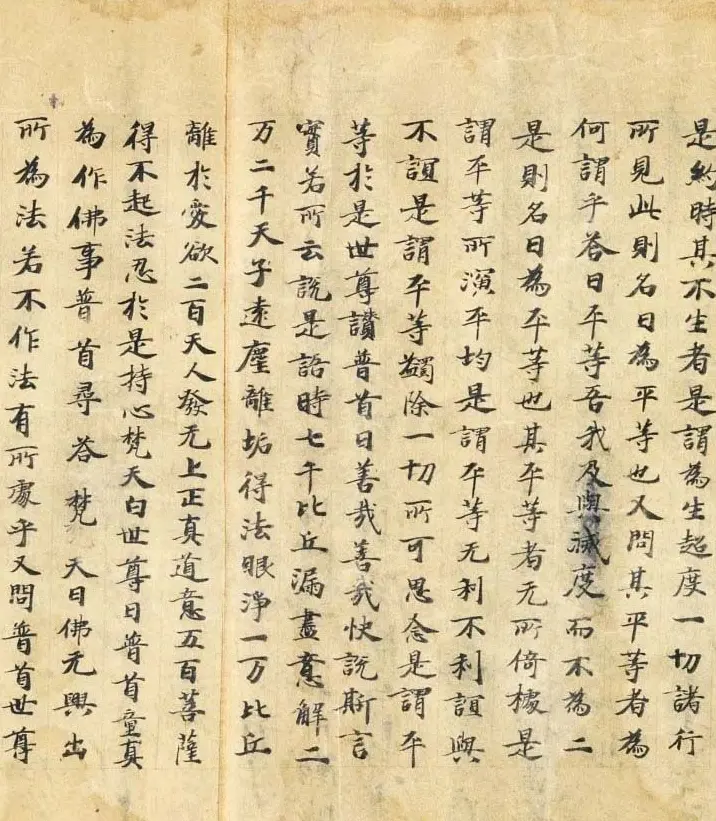 是約時其不生者是謂為生超度一切諸行
所見此則名曰為平等也又問其平等者為
何謂乎荅曰平等吾我及與滅度而不為二
是則名曰為平等也其平等者无所倚據是
謂平等所演平均是謂平等无利不利誼與
不誼是謂平等蠲除一切所可思念是謂平
等於是世尊讚普首曰善哉善哉快說斯言
實若所云說是語時七千比丘漏盡意解二
万二千天子遠塵離垢得法眼淨一万比丘
離於愛欲二百天人發无上正真道意五百菩薩
得不起法忍於是持心梵天白世尊曰普首童真
為作佛事普首尋荅梵天曰佛无興出
所為法若不作法有所處乎又問普首世尊